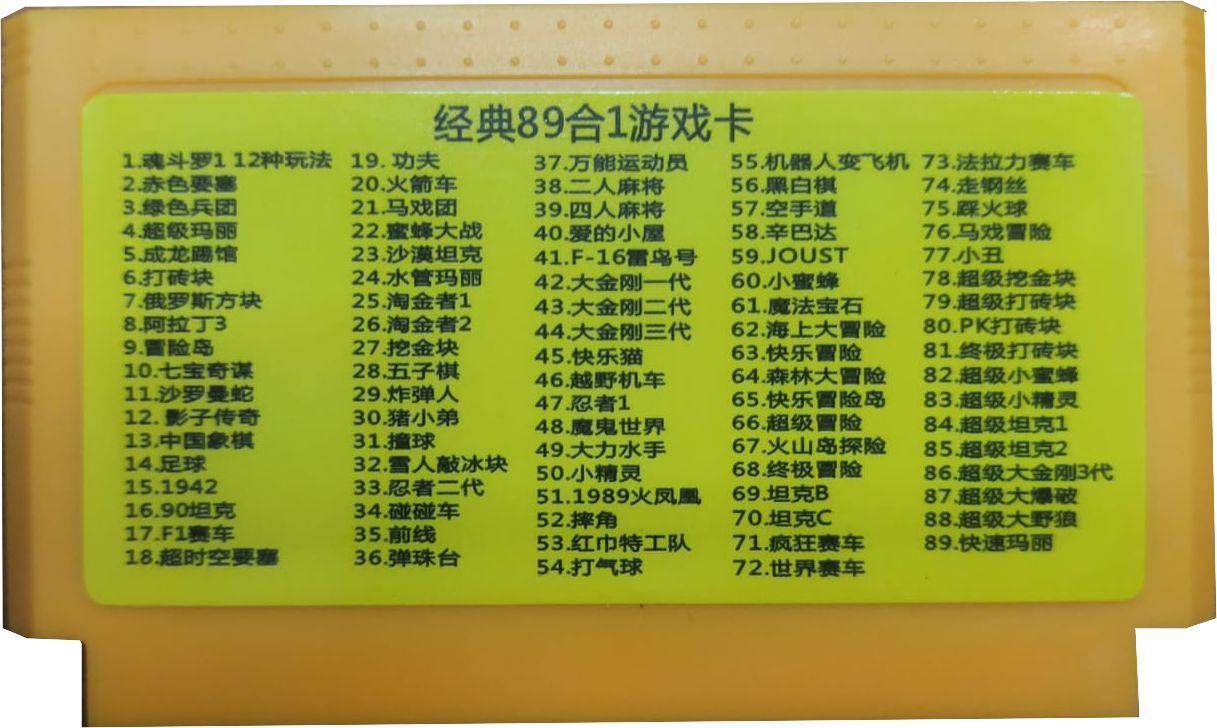 经典89合1游戏卡
1.魂斗罗1 12种玩法
2.赤色要塞
3.绿色兵团
4.超级玛丽
5.成龙踢馆
6.打砖块
7.俄罗斯方块
8.阿拉丁3
9.冒险岛
10.七宝奇谋
11.沙罗曼蛇
12. 影子传奇
13.中国象棋
14.足球
15.1942
16.90坦克
17.F1赛车
18.超时空要塞
19. 功夫
20.火箭车
21.马戏团
22.蜜蜂大战
23.沙漠坦克
24.水管玛丽
25.淘金者1
26.淘金者2
27.挖金块
28.五子棋
29.炸弹人
30.猪小弟
31.撞球
32.雪人敲冰块
33.忍者二代
34.碰碰车
35.前线
36.弹珠台
37.万能运动员
38.二人麻将
39.四人麻将
40.爱的小屋
41.F-16雷鸟号
42.大金刚一代
43.大金刚二代
44.大金刚三代
45.快乐猫
46.越野机车
47.忍者1
48.魔鬼世界
49.大力水手
50.小精灵
51.1989火凤凰
52.摔角
53.红巾特工队
54.打气球
55.机器人变飞机
56.黑白棋
57.空手道
58.辛巴达
59.JOUST
60.小蜜蜂
61.魔法宝石
62.海上大冒险
63.快乐冒险
64.森林大冒险
65.快乐冒险岛
66.超级冒险
67.火山岛探险
68.终极冒险
69.坦克B
70.坦克C
71.疯狂赛车
72.世界赛车
73.法拉力赛车
74.走钢丝
75.踩火球
76.马戏冒险
77.小丑
78.超级挖金块
79.超级打砖块
80.PK打砖块
81.终极打砖块
82.超级小蜜蜂
83.超级小精灵
84.超级坦克1
85.超级坦克2
86.超级大金刚3代
87.超级大爆破
88.超级大野狼
89.快速玛丽